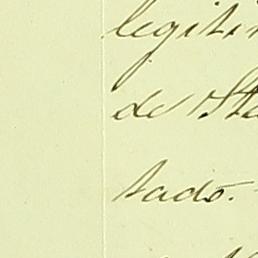 legiti
de Sta
tado.